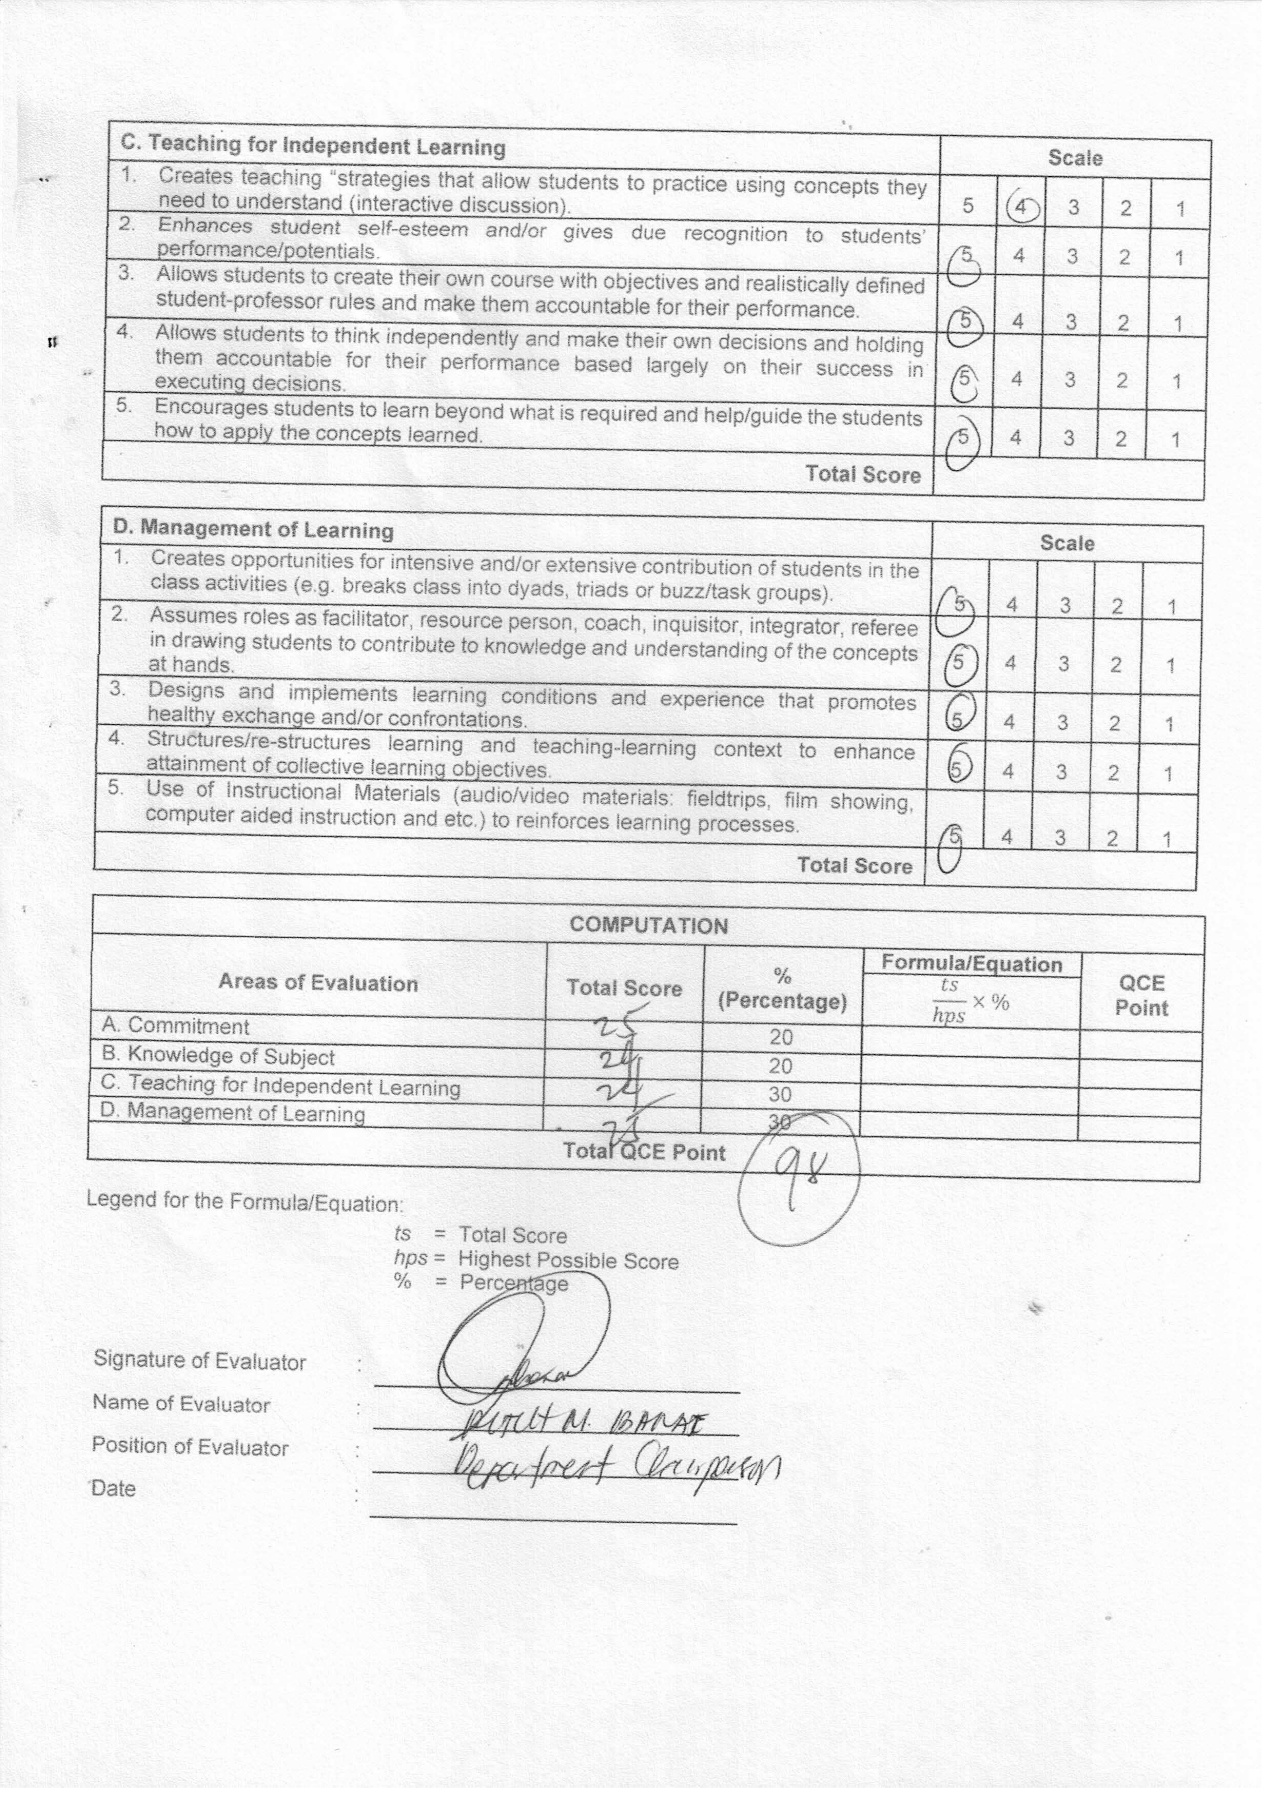 C. Teaching for Independent Learning
Scale
1. Creates teaching "strategies that allow students to practice using concepts they
need to understand (interactive discussion).
5 4 3 2 1
2. Enhances student self-esteem and/or gives due recognition to students'
performance/potentials.
5 4 3 2 1
3. Allows students to create their own course with objectives and realistically defined
student-professor rules and make them accountable for their performance.
5 4 3 2 1
4. Allows students to think independently and make their own decisions and holding
them accountable for their performance based largely on their success in
executing decisions.
5 4 3 2 1
5. Encourages students to learn beyond what is required and help/guide the students
how to apply the concepts learned.
5 4 3 2 1
Total Score
D. Management of Learning
Scale
1. Creates opportunities for intensive and/or extensive contribution of students in the
class activities (e.g. breaks class into dyads, triads or buzz/task groups).
5 4 3 2 1
2. Assumes roles as facilitator, resource person, coach, inquisitor, integrator, referee
in drawing students to contribute to knowledge and understanding of the concepts
at hands.
5 4 3 2 1
3. Designs and implements learning conditions and experience that promotes
healthy exchange and/or confrontations.
5 4 3 2 1
4. Structures/re-structures learning and teaching-learning context to enhance
attainment of collective learning objectives.
5 4 3 2 1
5. Use of Instructional Materials (audio/video materials: fieldtrips, film showing,
computer aided instruction and etc.) to reinforces learning processes.
5 4 3 2 1
Total Score
COMPUTATION
Areas of Evaluation
Total Score
%
(Percentage)
Formula/Equation
ts
hps × %
QCE
Point
A. Commitment 25 20
B. Knowledge of Subject 24 20
C. Teaching for Independent Learning 24 30
D. Management of Learning 25 30
Total QCE Point 98
Legend for the Formula/Equation:
ts = Total Score
hps = Highest Possible Score
% = Percentage
Signature of Evaluator :
Name of Evaluator : M.
Position of Evaluator : Department Chairperson
Date :